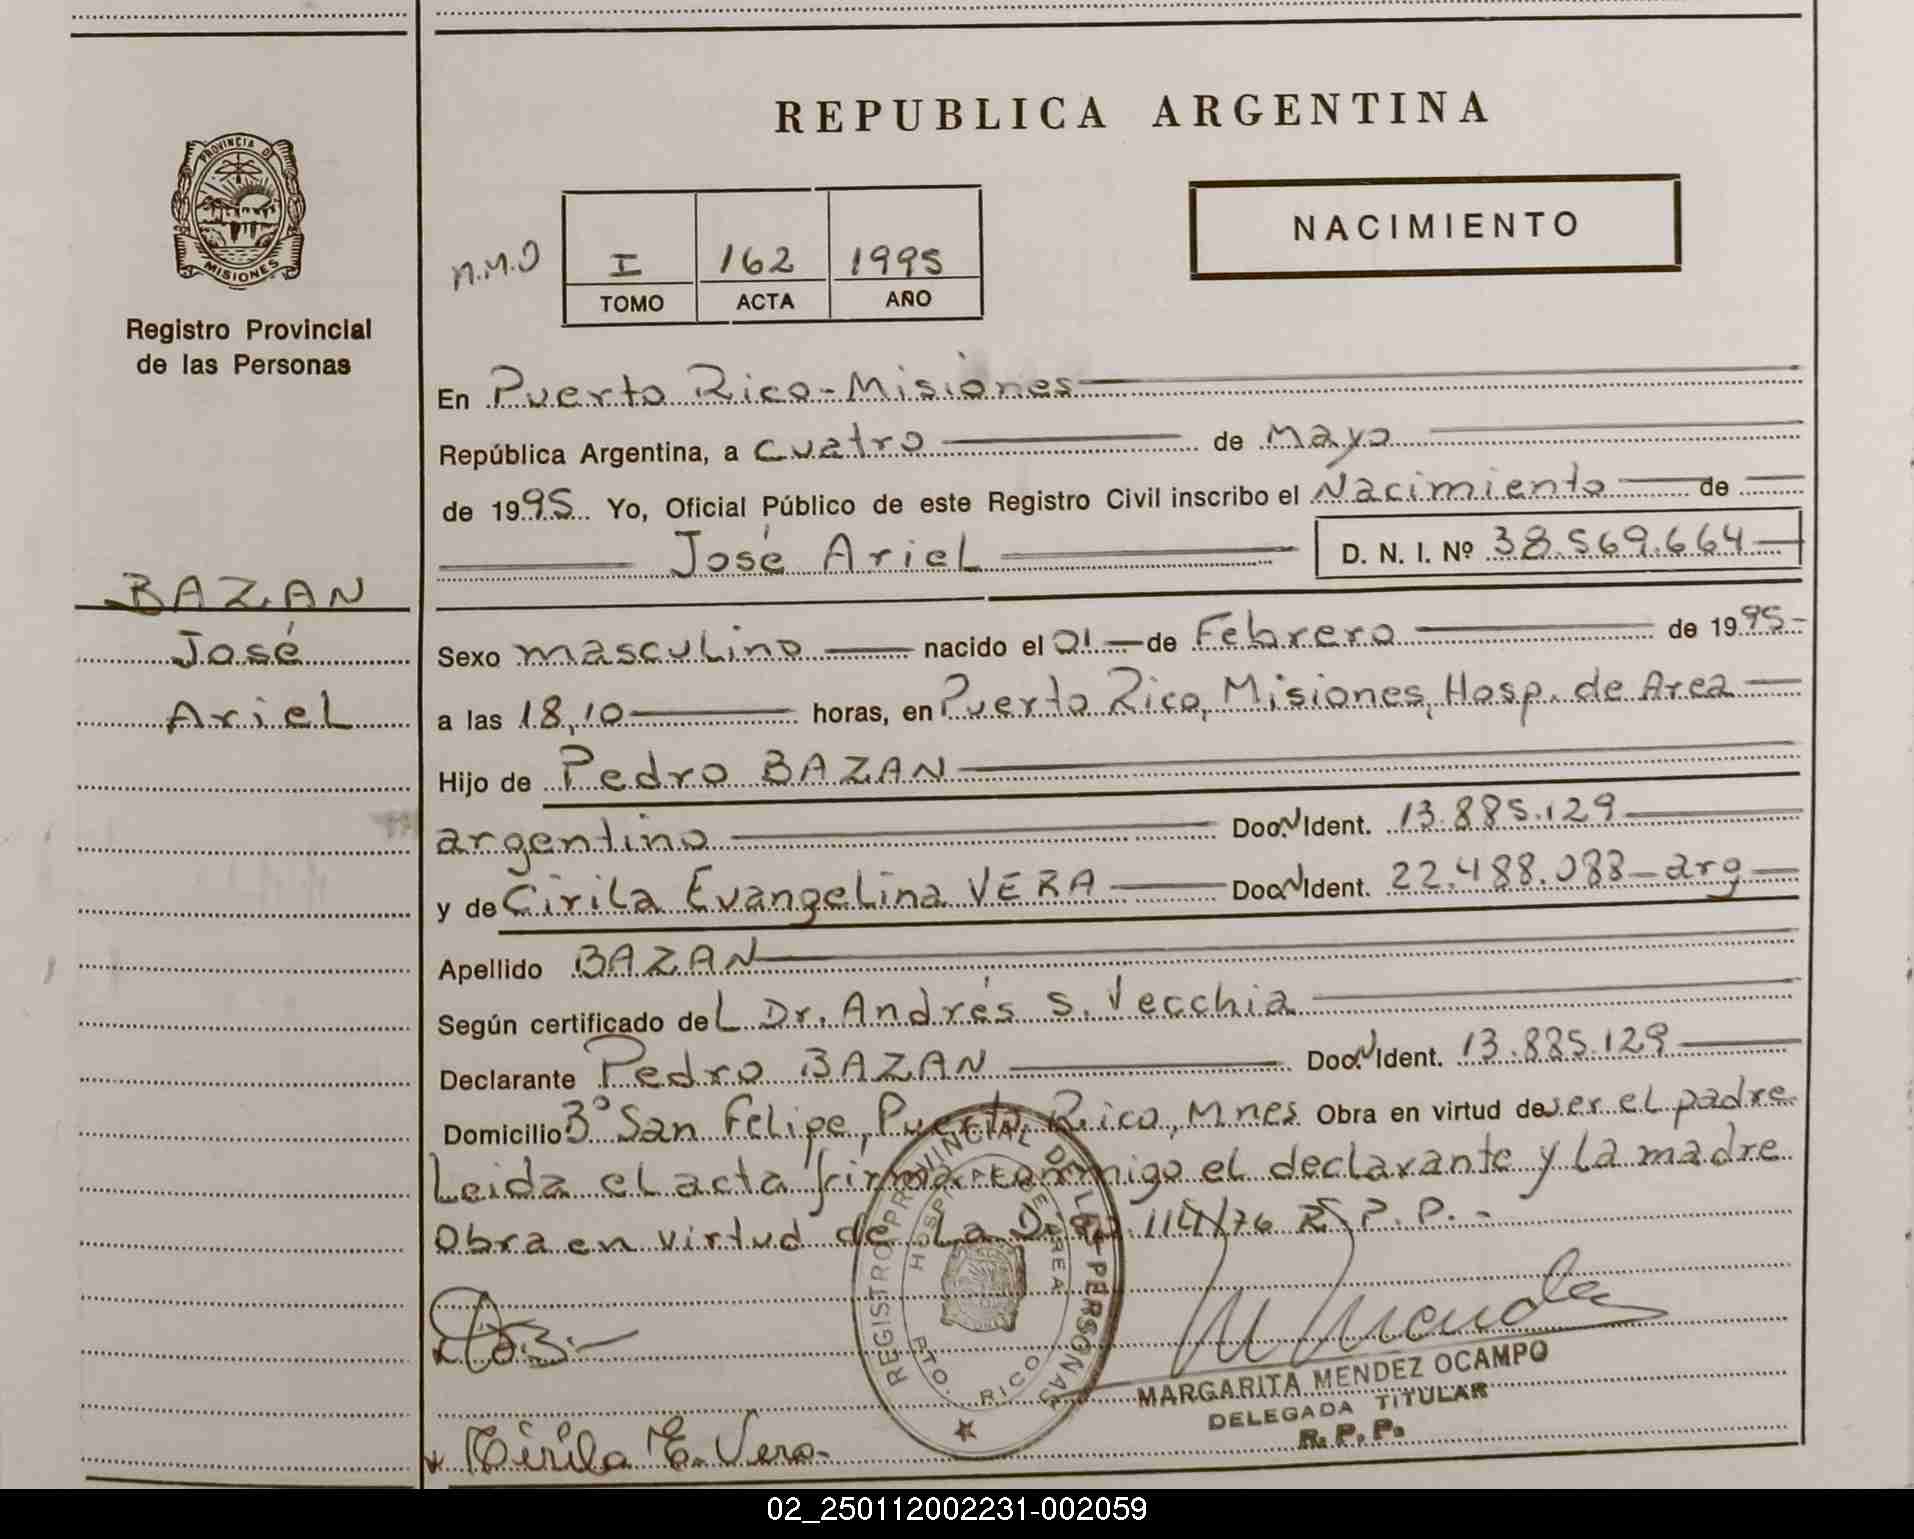 REPUBLICA ARGENTINA
PROVINCIA DE
MISIONES
Registro Provincial
de las Personas
NACIMIENTO
I 162 1995
TOMO ACTA AÑO
En Puerto Rico-Misiones
República Argentina, a cuatro de Mayo
de 1995. Yo, Oficial Público de este Registro Civil inscribo el Nacimiento de
José Ariel D. N. I. Nº 38.569.664
BAZAN
José
Ariel
Sexo masculino nacido el 01 de Febrero de 1995
a las 18,10 horas, en Puerto Rico, Misiones, Hosp. de Area
Hijo de Pedro BAZAN
argentino Doc.N Ident. 13.885.129
y de Cirila Evangelina VERA Doc.N Ident. 22.488.088-arg
Apellido BAZAN
Según certificado del Dr. Andrés S. Vecchia
Declarante Pedro BAZAN Doc.N Ident. 13.885.129
Domicilio Bº San Felipe, Puerto Rico, Mnes Obra en virtud de ser el padre
Leida el acta firma conmigo el declarante y la madre
Obra en virtud de La R. P. P.-
REGISTRO PROVINCIAL DE LAS PERSONAS
HOSPITAL DE AREA
PTO. RICO
MARGARITA MENDEZ OCAMPO
DELEGADA TITULAR
R. P. P.
Cirila E. Vera
02_250112002231-002059